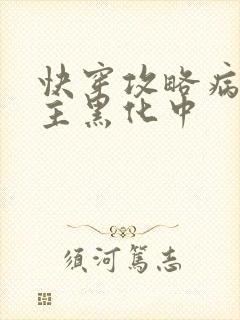 快穿攻略病
主黑化中
须河篤志